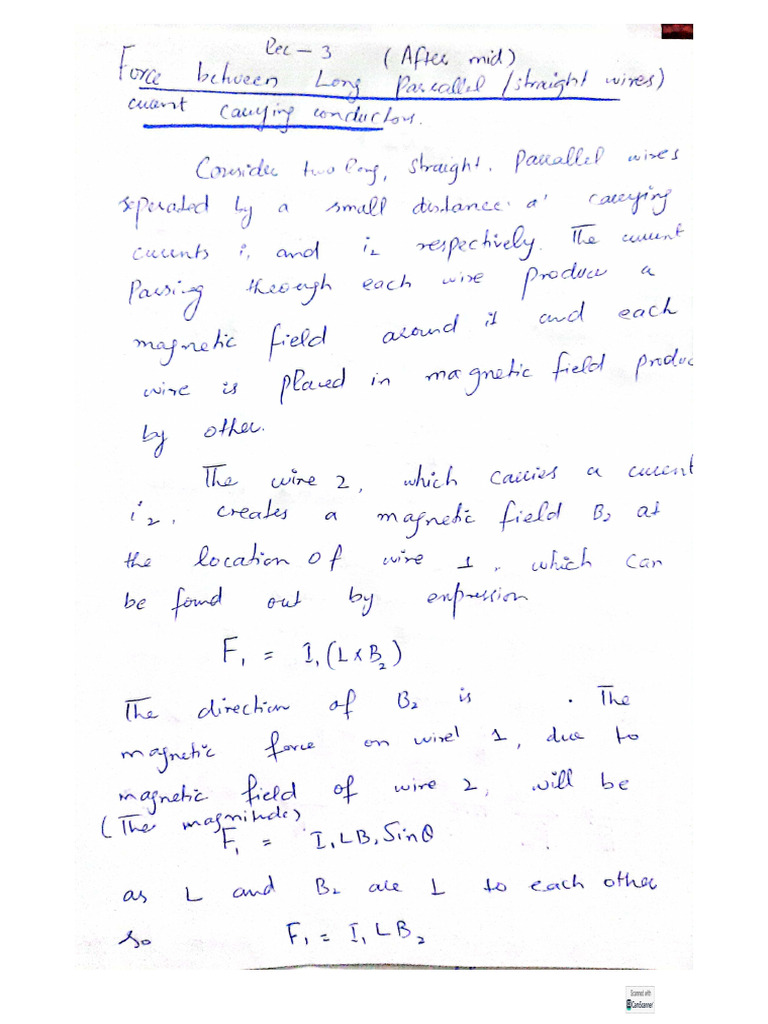 Rec - 3 (After mid)
Force between Long Parallel /straight wires)
current carrying conductors.
Consider two long, straight. Parallel wires
seperated by a small distance 'a' carrying
currents i, and i2 respectively. The current
Passing through each wire produce a
magnetic field around it and each
wire is placed in magnetic field produc
by other.
The wire 2, which carries a current
i2, creates a magnetic field B2 at
the location of wire 1, which can
be found out by expression
F1 = I1 (L×B2)
The direction of B2 is . The
magnetic force on wire 1, due to
magnetic field of wire 2, will be
(The magnitude)
F1 = I1LB2Sinθ
as L and B2 are ⊥ to each other
so F1 = I1 L B2
Scanned with
CamScanner